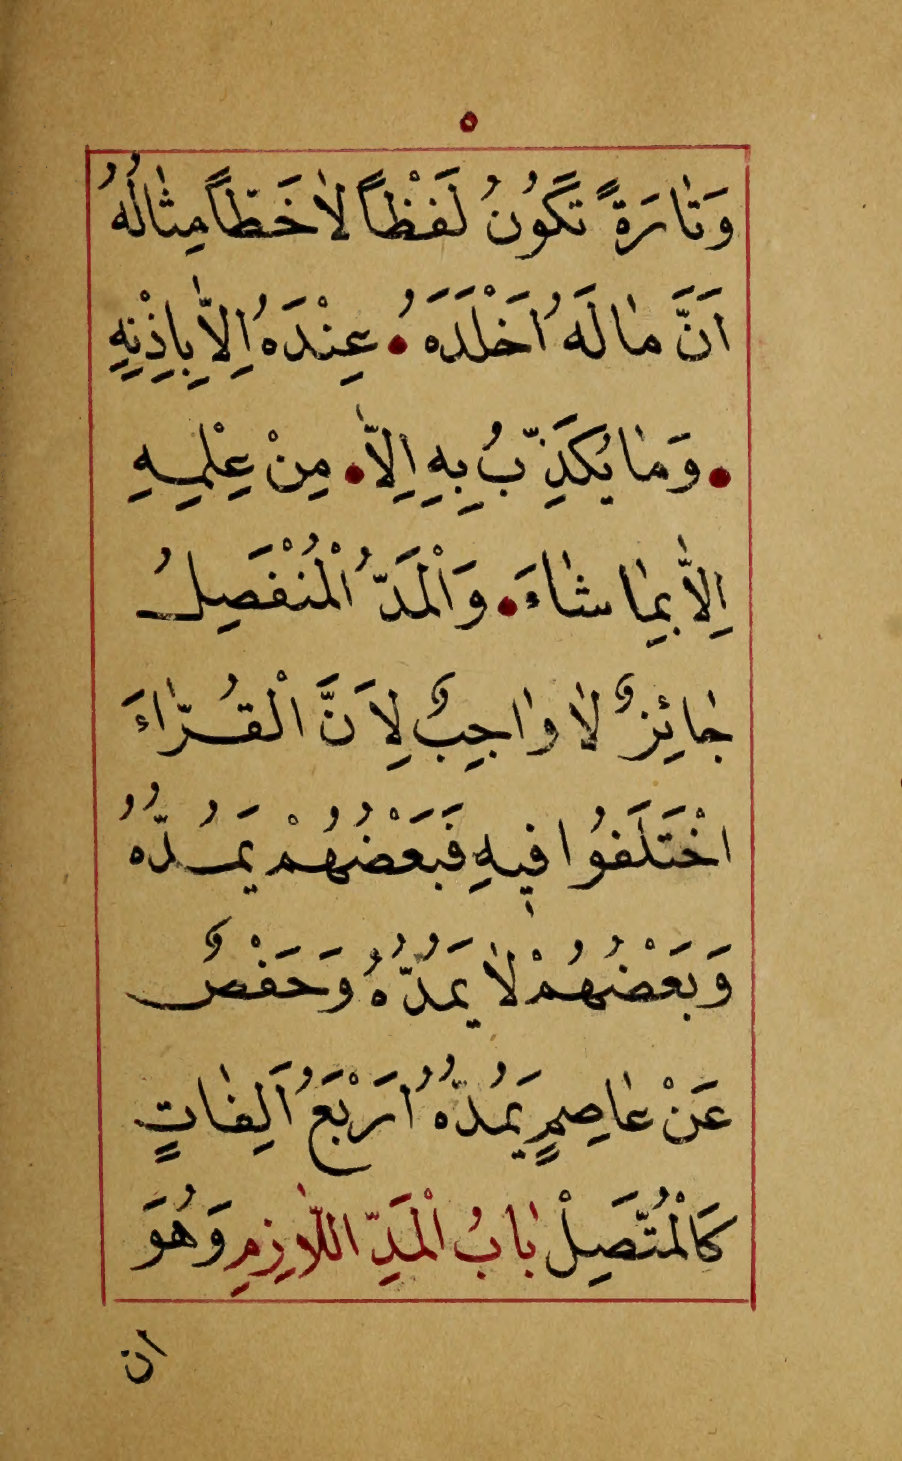 ٥
وَتٰارَةً تَكُونُ لَفْظاً لاٰ خَطّاً مِثٰالُهُ
اَنَّ مٰا لَهُ اَخْلَدَهُ . عِنْدَهُ اِلاّٰ بِاِذْنِهِ
. وَمٰا يُكَذِّبُ بِهِ اِلاّٰ . مِنْ عِلْمِهِ
اِلاّٰ بِمٰا شٰاءَ . وَالْمَدُّ الْمُنْفَصِلُ
جٰائِزٌ لاٰ وٰاجِبٌ لِاَنَّ الْقُرّٰاءَ
اخْتَلَفُوا فٖيهِ فَبَعْضُهُمْ يَمُدُّهُ
وَبَعْضُهُمْ لاٰ يَمُدُّهُ وَحَفْصٌ
عَنْ عٰاصِمٍ يَمُدُّهُ اَرْبَعَ اَلِفٰاتٍ
كَالْمُتَّصِلْ بٰابُ الْمَدِّ اللاّٰزِمِ وَهُوَ
ان